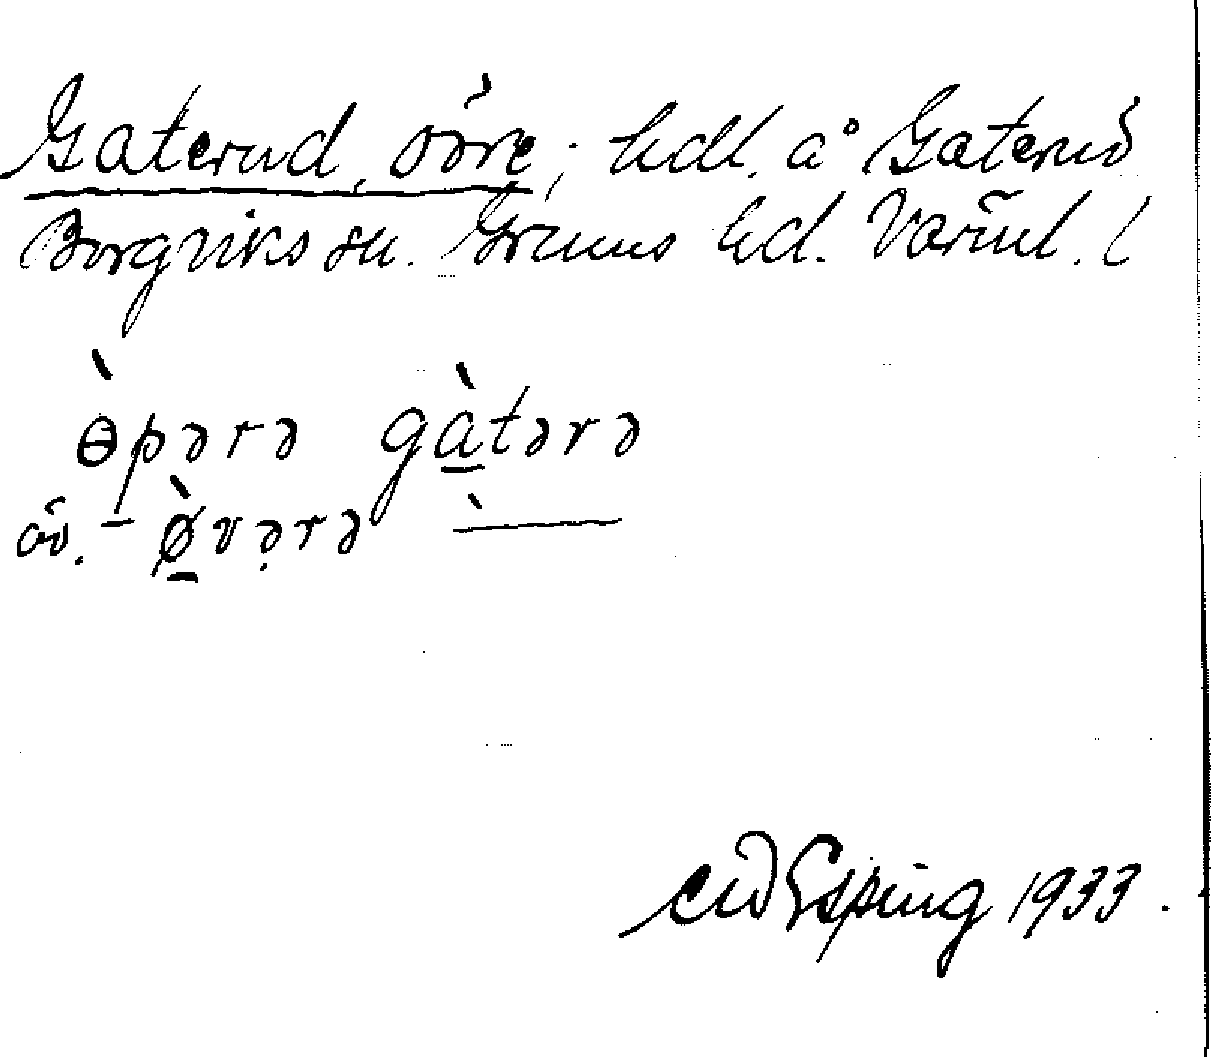 Gaterud, söre; hdl. å Gaterud
Borgviks sn. Grums hd. Värml. l
ɵ̀pərə gàtərə
äv. – ø̀vərə
Esping 1933.